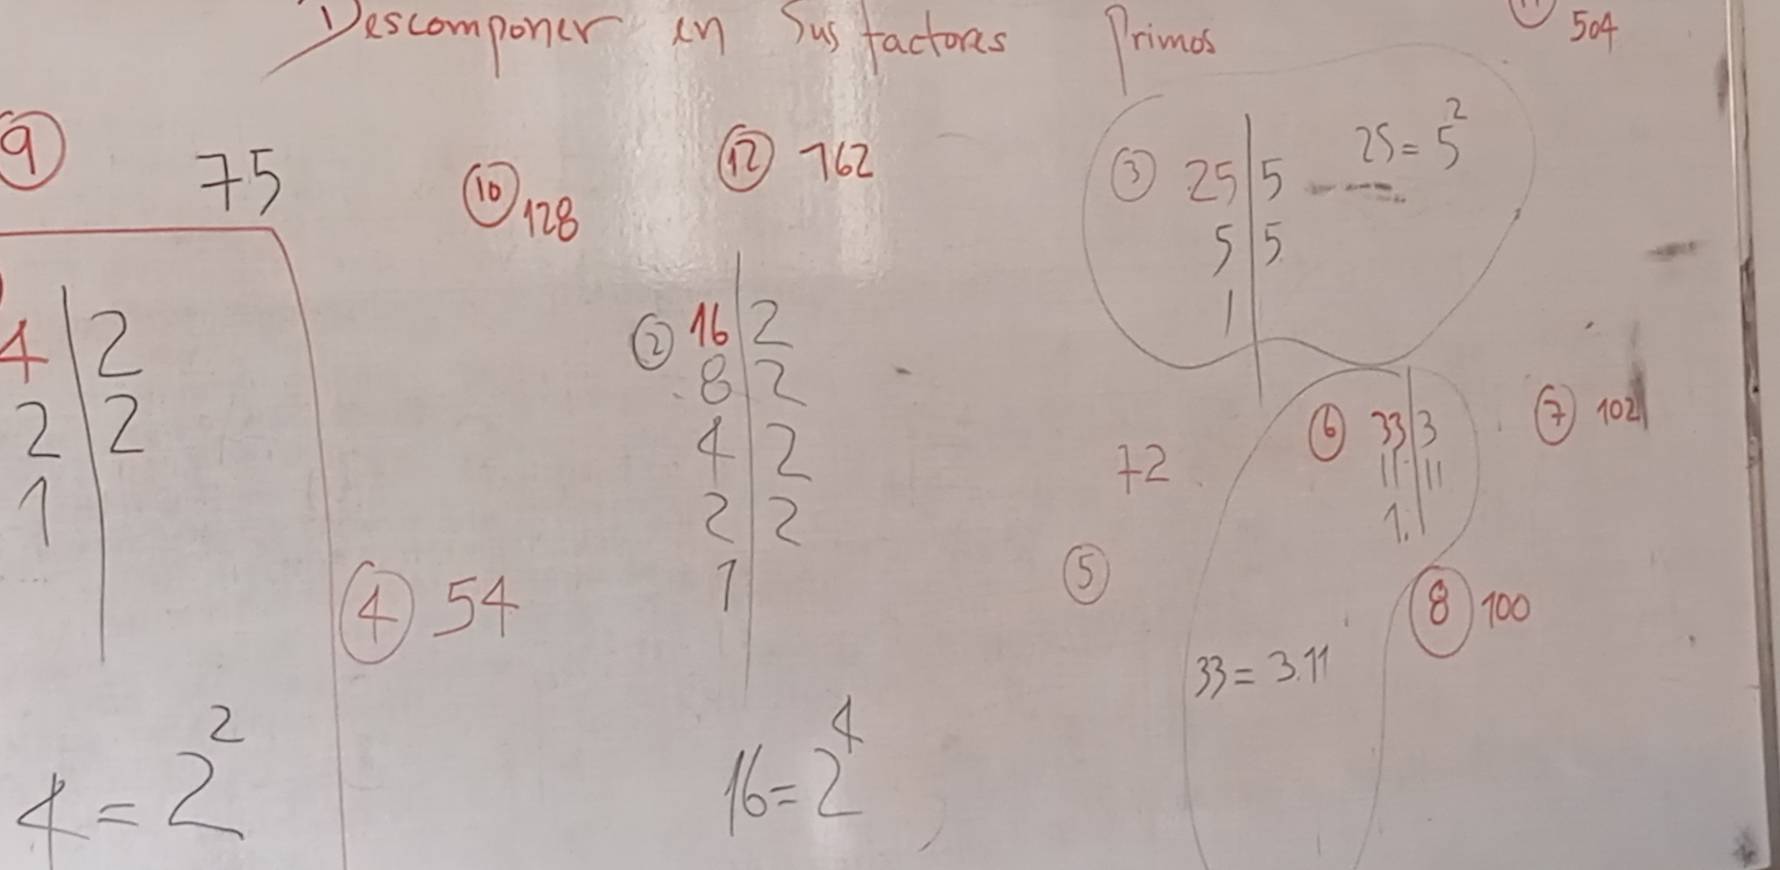 Descomponer en Sus factores Primos
504
9 75
10 128
12 762
3 25 | 5 25 = 5²
5 | 5
1
4 | 2
2 | 2
1
4 = 2²
2 16 | 2
8 | 2
4 | 2
2 | 2
1
16 = 2⁴
4 54
72
5
6 33 | 3
11 | 11
1
33 = 3.11
7 102
8 100